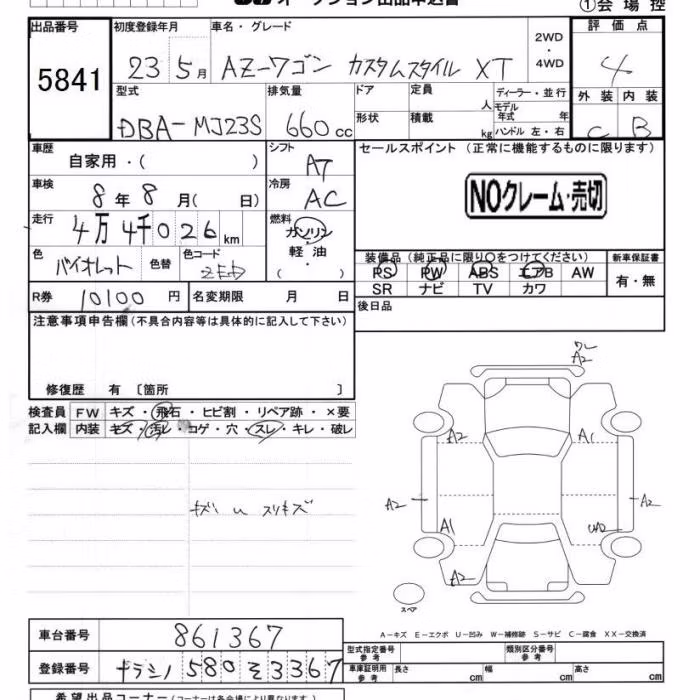 オークション出品申込書 ①会場控
出品番号 初度登録年月 車名・グレード 2WD・4WD 評価点
5841 23 5月 AZ-ワゴン カスタムスタイル XT 4
型式 排気量 ドア 定員 人 ディーラー・並行 外装 内装
DBA-MJ23S 660cc 形状 積載 kg モデル年式 年 ハンドル 左・右 C B
車歴 自家用・( ) シフト AT セールスポイント(正常に機能するものに限ります)
車検 8年8月( 日) 冷房 AC NOクレーム・売切
走行 4万4千026km 燃料 ガソリン・軽油( )
色 バイオレット 色替 色コード ZED 装備品(純正品に限り○をつけてください) 新車保証書
PS PW ABS エアB AW 有・無
SR ナビ TV カワ
R券 10100円 名変期限 月 日 後日品
注意事項申告欄(不具合内容等は具体的に記入して下さい)
修復歴 有 〔箇所 〕
検査員 FW キズ・飛石・ヒビ割・リペア跡・×要
記入欄 内装 キズ・汚レ・コゲ・穴・スレ・キレ・破レ
ワレ
A2
A2 A1
A2 A2
A1 UA2
A2
スペア
A-キズ E-エクボ U-凹み W-補修跡 S-サビ C-腐食 XX-交換済
車台番号 861367 型式指定番号 参考 類別区分番号 参考
登録番号 ナラシノ 580 そ 3367 車庫証明用 参考 長さ cm 幅 cm 高さ cm
希望出品コーナー(コーナーは各会場により異なります)